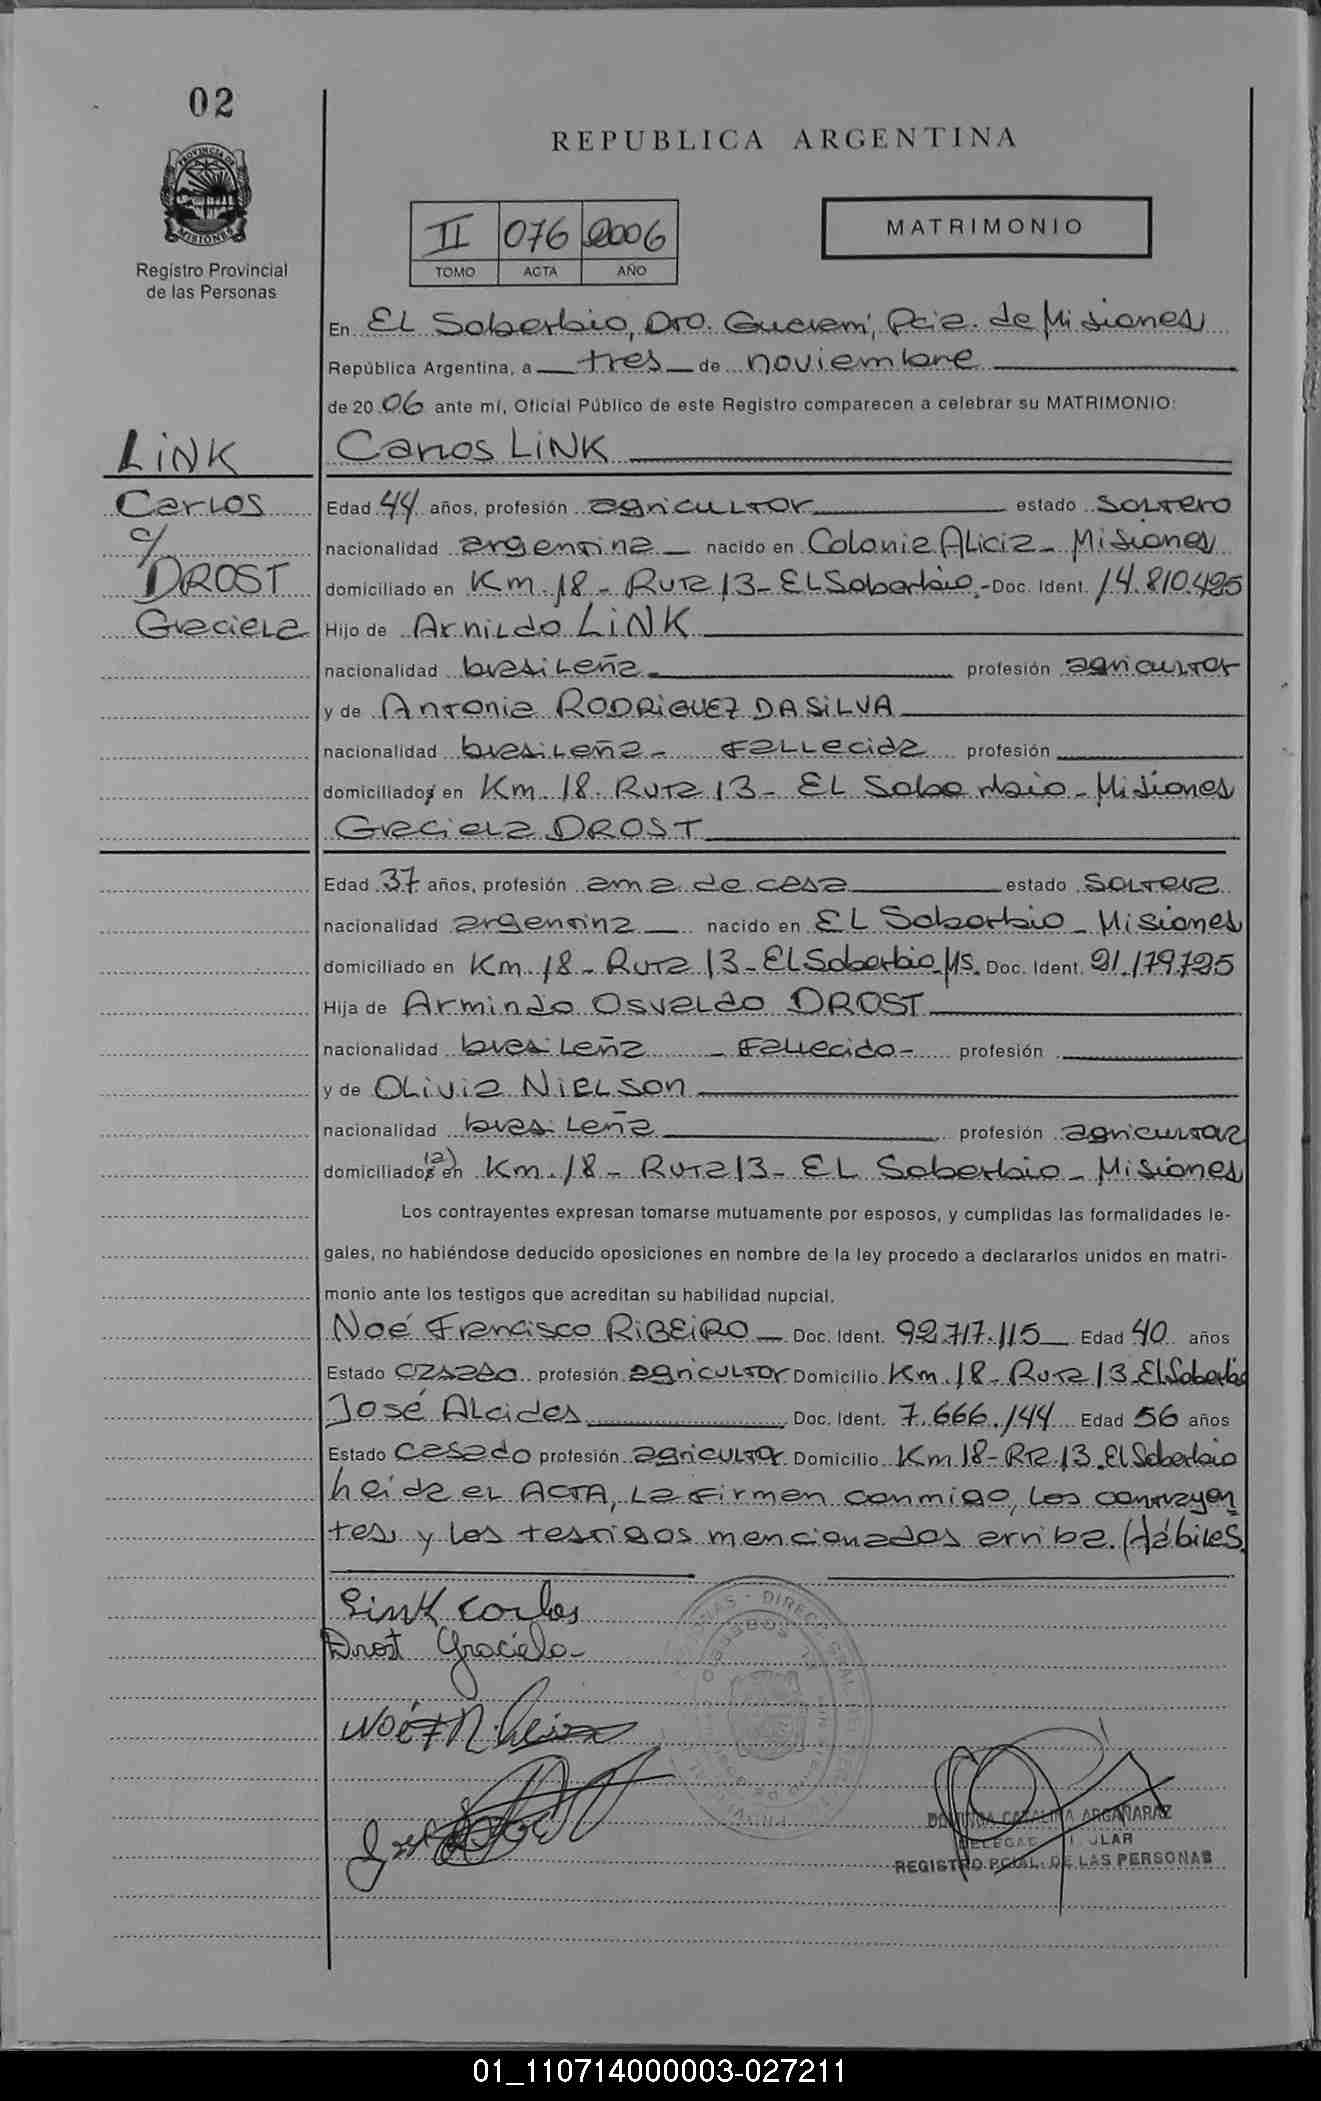 02
REPUBLICA ARGENTINA
PROVINCIA DE
MISIONES
Registro Provincial
de las Personas
II 076 2006
TOMO ACTA AÑO
MATRIMONIO
En EL Soberbio, Dto. Guaraní, Pcia. de Misiones
República Argentina, a tres de noviembre
de 2006 ante mí, Oficial Público de este Registro comparecen a celebrar su MATRIMONIO:
LINK
Carlos
c/
DROST
Graciela
Carlos LINK
Edad 44 años, profesión agricultor estado soltero
nacionalidad argentina nacido en Colonia Alicia - Misiones
domiciliado en Km. 18 - Ruta 13 - EL Soberbio.- Doc. Ident. 14.810.425
Hijo de Arnildo LINK
nacionalidad brasileña profesión agricultor
y de Antonia RODRIGUEZ DA SILVA
nacionalidad brasileña - Fallecida profesión
domiciliados en Km. 18. Ruta 13 - EL Soberbio - Misiones
Graciela DROST
Edad 37 años, profesión ama de casa estado soltera
nacionalidad argentina nacido en EL Soberbio - Misiones
domiciliado en Km. 18 - Ruta 13 - EL Soberbio - Ms. Doc. Ident. 21.179.725
Hija de Armindo Osvaldo DROST
nacionalidad brasileña - Fallecido - profesión
y de Olivia NIELSON
nacionalidad brasileña profesión agricultora
domiciliados (a) en Km. 18 - Ruta 13 - EL Soberbio - Misiones
Los contrayentes expresan tomarse mutuamente por esposos, y cumplidas las formalidades le-
gales, no habiéndose deducido oposiciones en nombre de la ley procedo a declararlos unidos en matri-
monio ante los testigos que acreditan su habilidad nupcial.
Noé Francisco RIBEIRO Doc. Ident. 92.717.115 Edad 40 años
Estado casado profesión agricultor Domicilio Km. 18 - Ruta 13 - El Soberbio
José Alcides Doc. Ident. 7.666.144 Edad 56 años
Estado casado profesión agricultor Domicilio Km 18 - Rta. 13 - El Soberbio
leída el ACTA, la firman conmigo, los contrayen
tes y los testigos mencionados arriba. Hábiles.
Link Carlos
Drost Graciela -
REGISTRO PCIAL. DE LAS PERSONAS
01_110714000003-027211